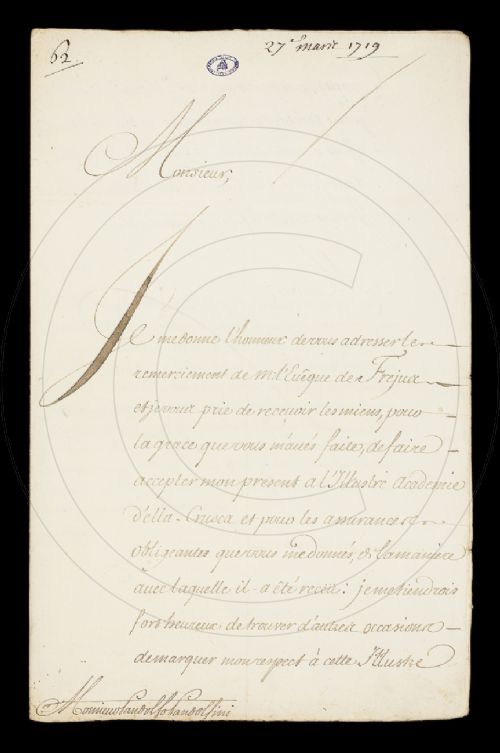 62
27e mars 1719
Monsieur,
Je me donne l'honneur de vous adresser le
remerciement de mr. l'Evêque de Frejus
et je vous prie de recevoir les miens, pour
la grace que vous m'avés faite, de faire
accepter mon present a l'Illustre academie
d'ella-Crusca et pour les assurances
obligeantes que vous me donnés, de la maniere
avec laquelle il a été receu: je me tiendrois
fort heureux de trouver d'autres occasions
de marquer mon respect à cette Illustre
Monsieur Pandolfo Pandolfini